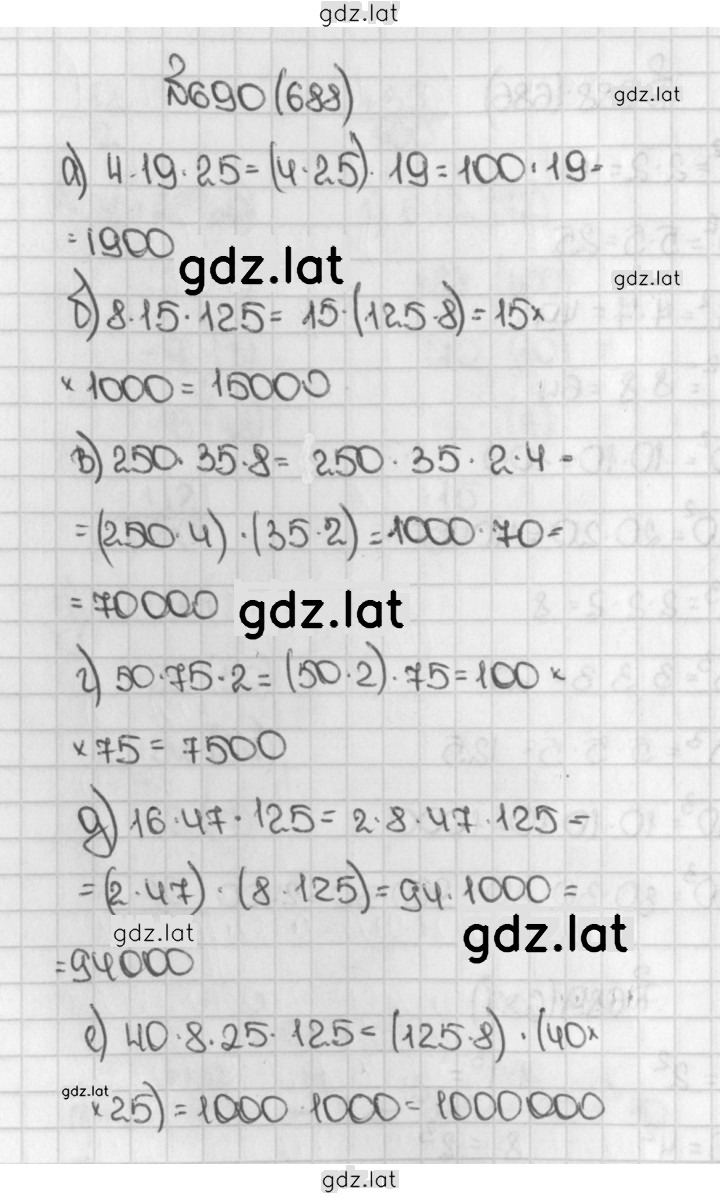 gdz.lat
№690 (688)
gdz.lat
а) 4·19·25=(4·25)·19=100·19=
=1900
gdz.lat
gdz.lat
б) 8·15·125= 15·(125·8)=15×
×1000=15000
в) 250·35·8= 250·35·2·4=
=(250·4)·(35·2)=1000·70=
=70000
gdz.lat
г) 50·75·2=(50·2)·75=100×
×75=7500
д) 16·47·125=2·8·47·125=
=(2·47)·(8·125)=94·1000=
gdz.lat
gdz.lat
=94000
е) 40·8·25·125=(125·8)·(40×
gdz.lat
×25)=1000·1000=1000000
gdz.lat